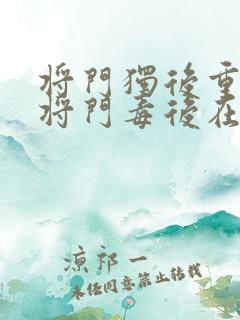 将門獨後重
将門毒後在
涼祁一
未经同意禁止转载